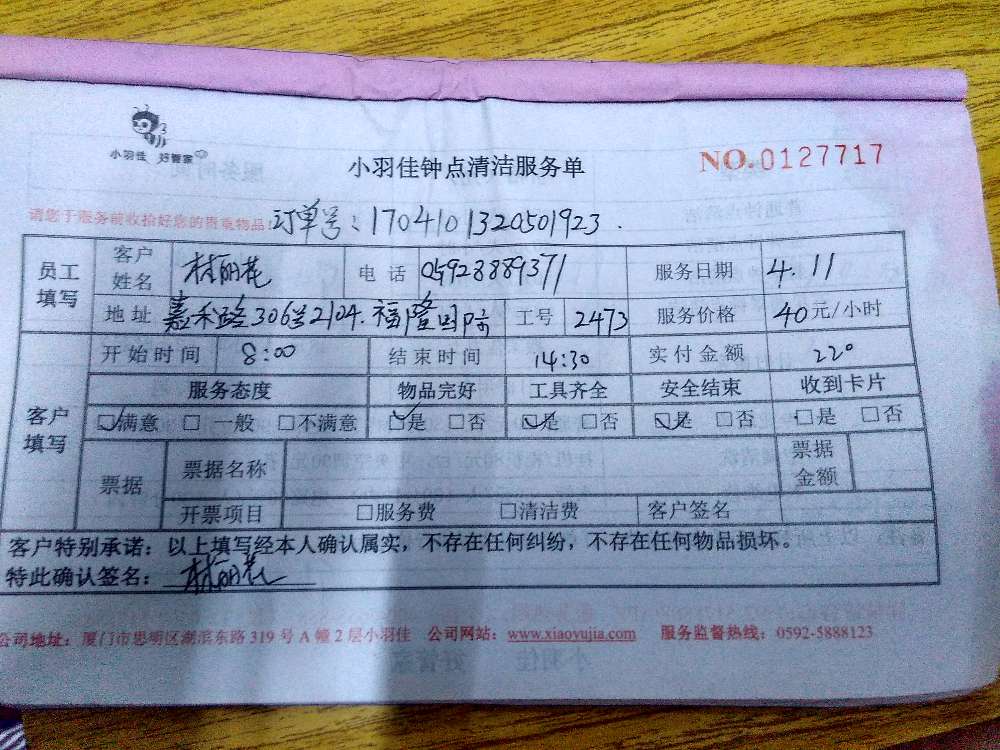 小羽佳 好管家
小羽佳钟点清洁服务单
NO.0127717
请您于服务前收拾好您的贵重物品!
订单号：170410132050192​3.
员工填写 客户姓名 林丽花 电话 05928889371 服务日期 4.11
地址 嘉禾路306号2104.福隆国际 工号 2473 服务价格 40元/小时
客户填写 开始时间 8:00 结束时间 14:30 实付金额 220
服务态度 物品完好 工具齐全 安全结束 收到卡片
☑满意 □一般 □不满意 ☑是 □否 ☑是 □否 ☑是 □否 □是 □否
票据 票据名称 票据金额
开票项目 □服务费 □清洁费 客户签名
客户特别承诺：以上填写经本人确认属实，不存在任何纠纷，不存在任何物品损坏。
特此确认签名：林丽花
公司地址：厦门市思明区湖滨东路319号A幢2层小羽佳 公司网站：www.xiaoyujia.com 服务监督热线：0592-5888123